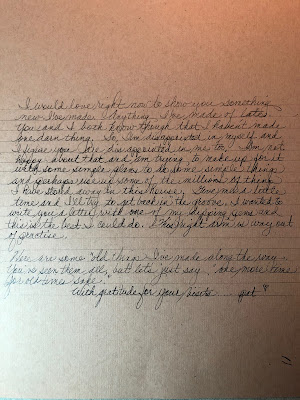 I would love right now to show you something
new I've made; anything I've made of late.
You and I both know though that I haven't made
one darn thing. So, I'm disappointed in myself and
I figure you are disappointed in me too. I'm not
happy about that and am trying to make up for it
with some simple plans to do some simple things
and perhaps use up some of the millions of things
I have stored away in this house. Give me a little
time and I'll try to get back in the groove. I wanted to
write you a letter with one of my dipping pens and
this is the best I could do. This right arm is way out
of practice.
Here are some old things I've made along the way.
You've seen them all, but let's just say, "one more time
for old times sake."
With gratitude for your visits....